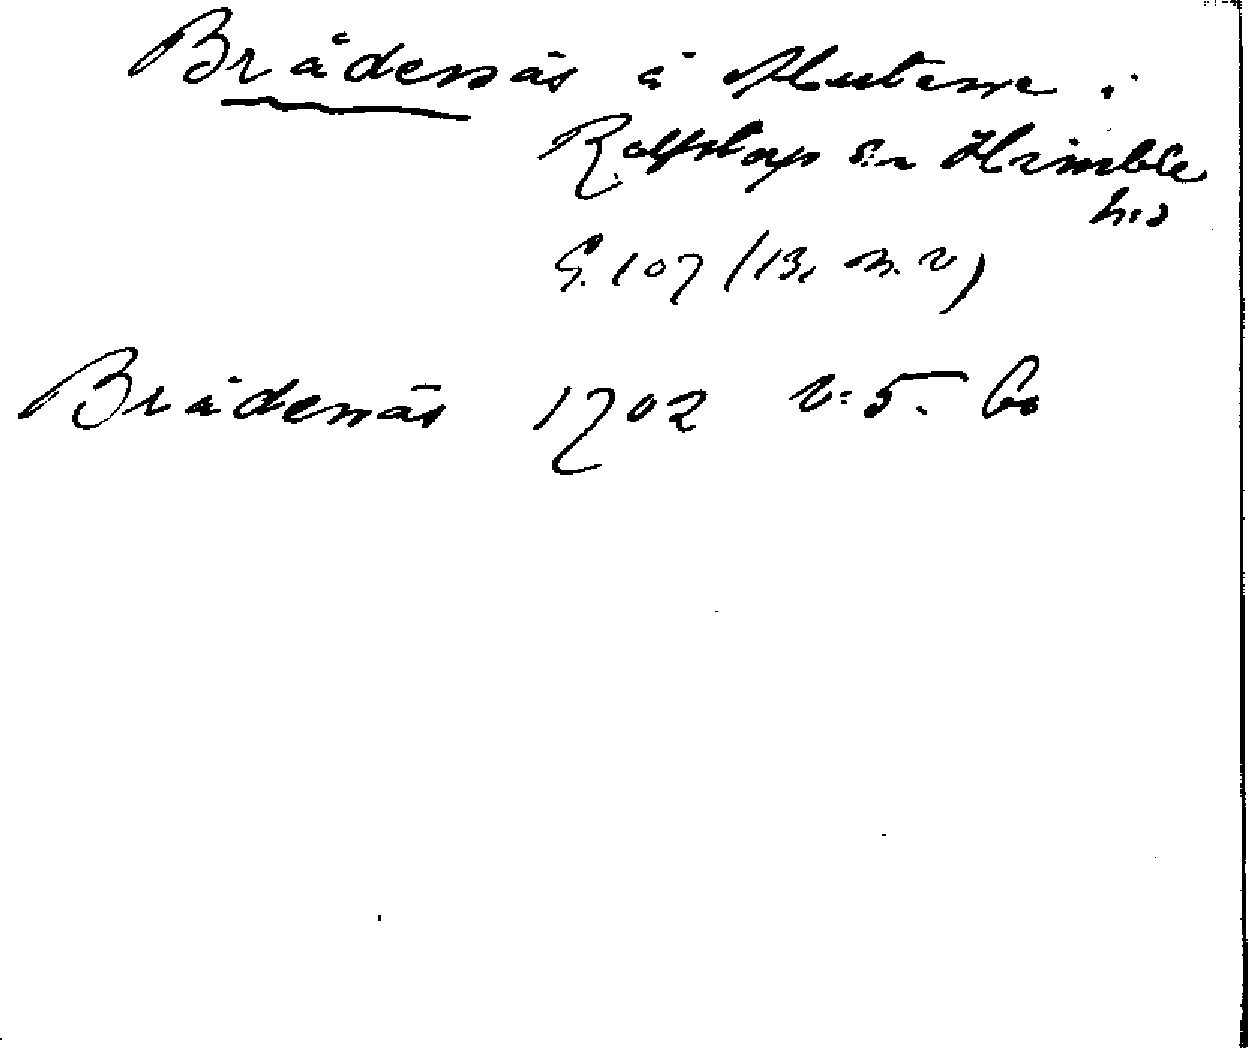 Brådenäs å Autene i
Rolfstorp sn Himble
hd
S. 107 (13, m. v)
Brådenäs 1702 v. 5. Co